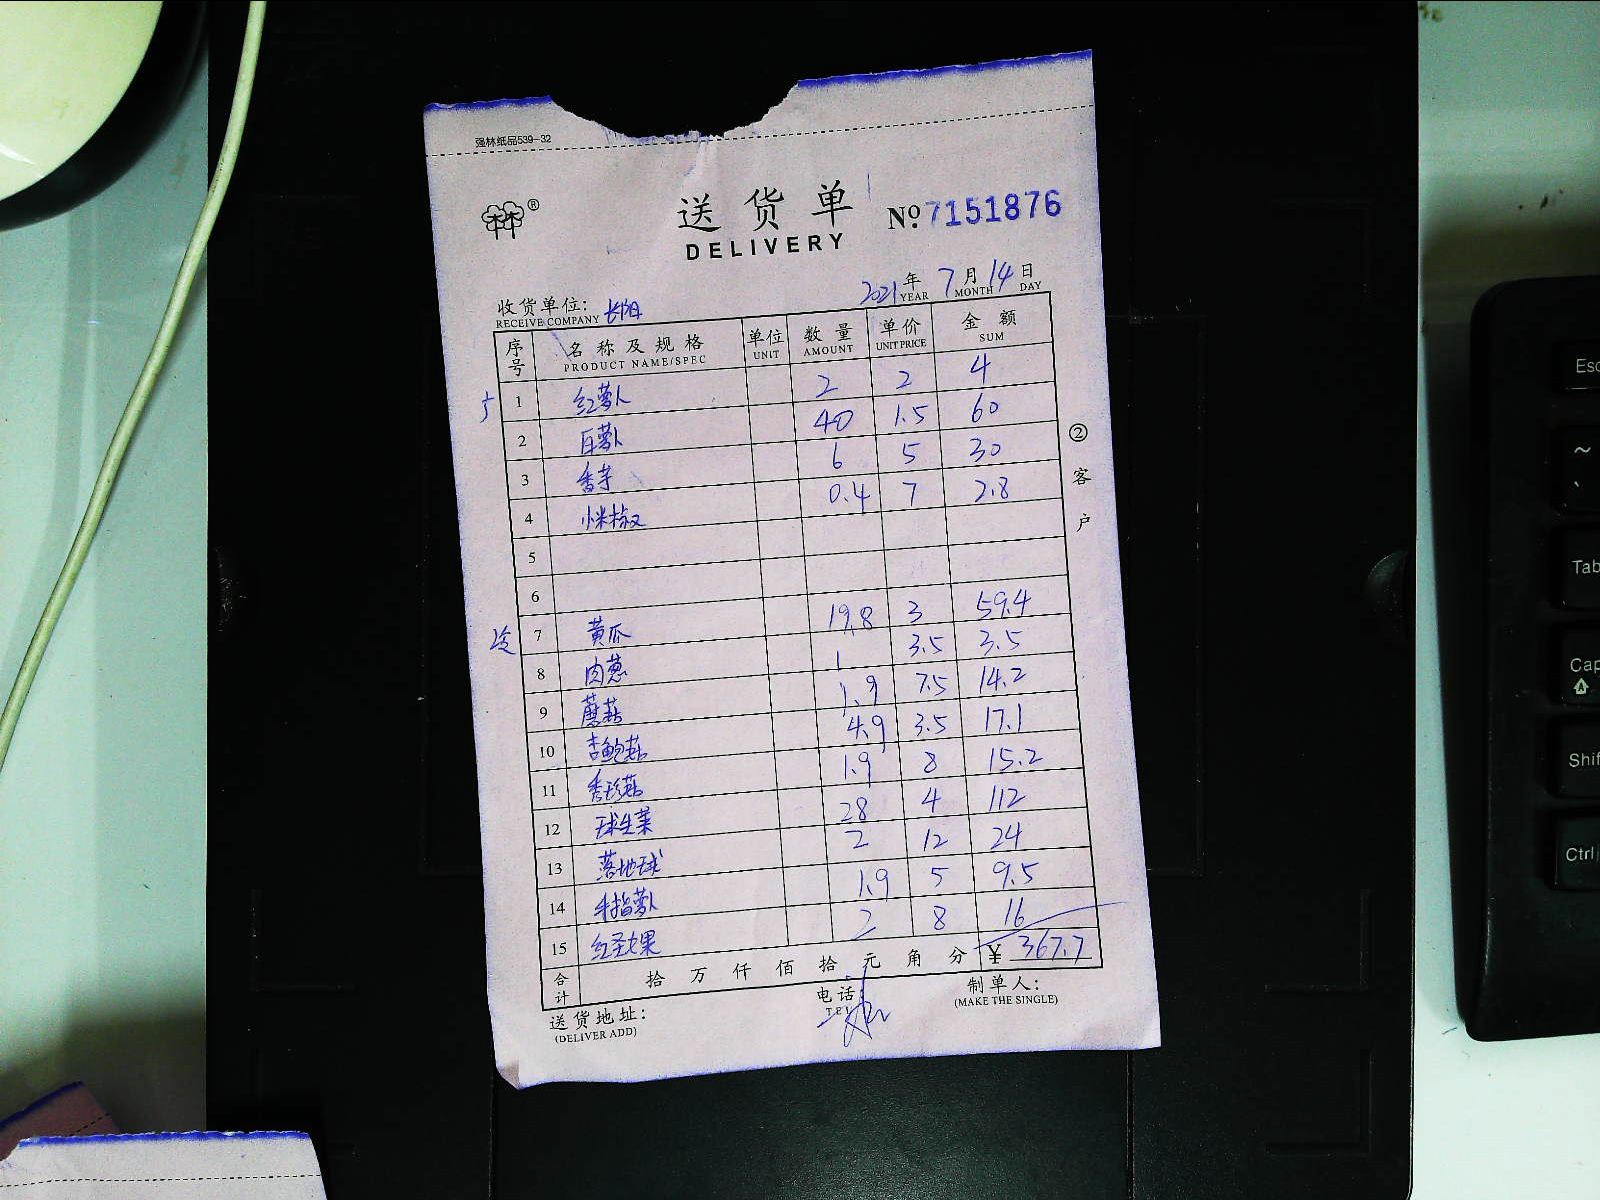 强林纸品539-32
送货单 №7151876
DELIVERY
2021年 7月 14日
YEAR MONTH DAY
收货单位: 长阳
RECEIVE COMPANY
序号 名称及规格 单位 数量 单价 金额
PRODUCT NAME/SPEC UNIT AMOUNT UNIT PRICE SUM
1 红萝卜 2 2 4
2 白萝卜 40 1.5 60
3 香芋 6 5 30
4 小米椒 0.4 7 2.8
5
6
7 黄瓜 19.8 3 59.4
8 肉葱 1 3.5 3.5
9 蘑菇 1.9 7.5 14.2
10 杏鲍菇 4.9 3.5 17.1
11 秀珍菇 1.9 8 15.2
12 球生菜 28 4 112
13 落地球 2 12 24
14 手指萝卜 1.9 5 9.5
15 红圣女果 2 8 16
合计 拾 万 仟 佰 拾 元 角 分 ¥ 367.7
②客户
送货地址: 电话: 制单人:
(DELIVER ADD) TEL (MAKE THE SINGLE)
Esc
~
Tab
Cap
Shif
Ctrl